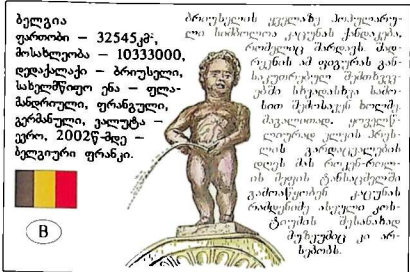 ბელგია
ფართობი – 32545კმ²,
მოსახლეობა – 10333000,
დედაქალაქი – ბრიუსელი,
სახელმწიფო ენა – ფლა-
მანდრიული, ფრანგული,
გერმანული, ვალუტა –
ევრო, 2002წ-მდე –
ბელგიური ფრანკი.
B
ბრიუსელის ყველაზე პოპულარუ-
ლი სიმბოლოა კაცუნას ქანდაკება,
რომელიც შარდავს. შად-
რევნის ამ ფიგურას გან-
საკუთრებულ შემთხვევ-
ებში სხვადასხვა სამო-
სით შემოსავენ ხოლმე.
მაგალითად, ყოველწ-
ლიურად ელვის პრეს-
ლის გარდაცვალების
დღეს მას როკ-ენ-როლ-
ის მეფის ტანსაცმელში
გამოაწყობენ. კაცუნას
რამდენიმე ასეული კოს-
ტიუმის შესანახად
მუზეუმიც კი არ-
სებობს.